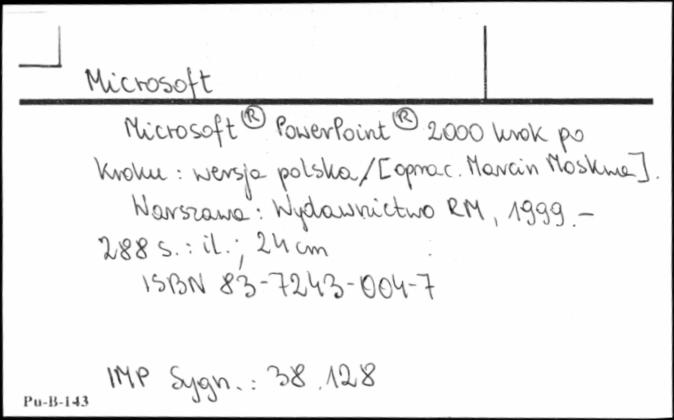 Microsoft
Microsoft® PowerPoint® 2000 krok po
kroku : wersja polska / [oprac. Marcin Moskwa].
Warszawa : Wydawnictwo RM, 1999.–
288 s. : il. ; 24 cm
ISBN 83-7243-004-7
IMP Sygn. : 38.128
Pu-B-143